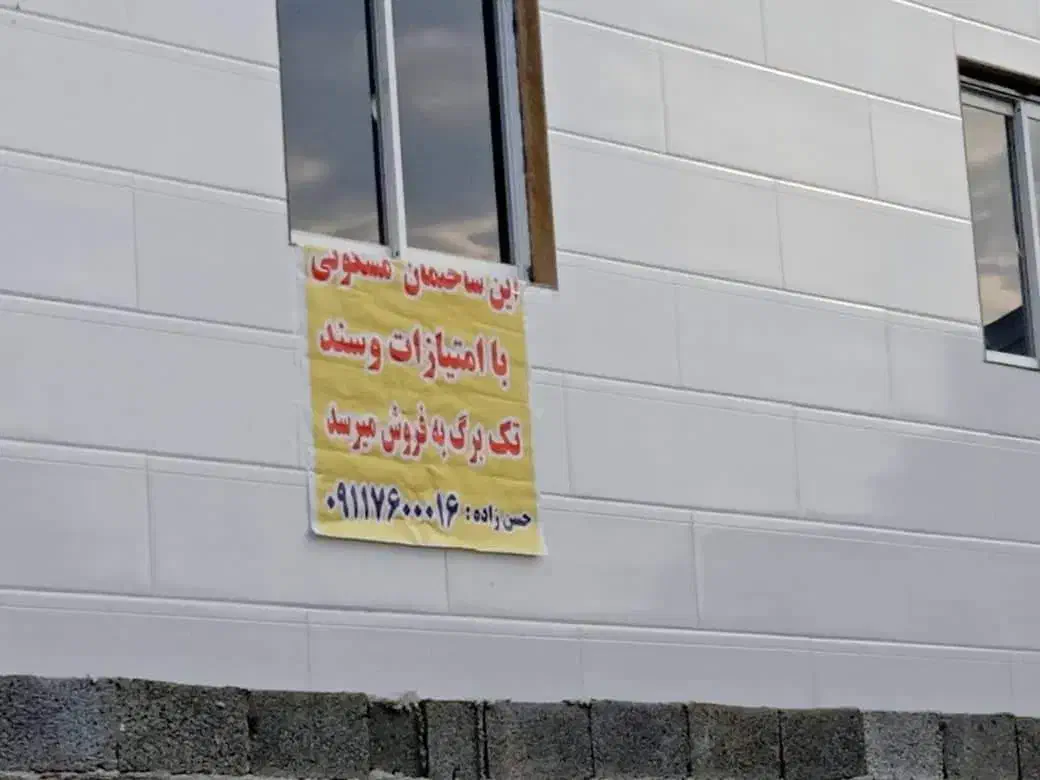 این ساختمان مسکونی
با امتیازات وسند
تک برگ به فروش میرسد
حسن زاده : ۰۹۱۱۷۶۰۰۰۱۶